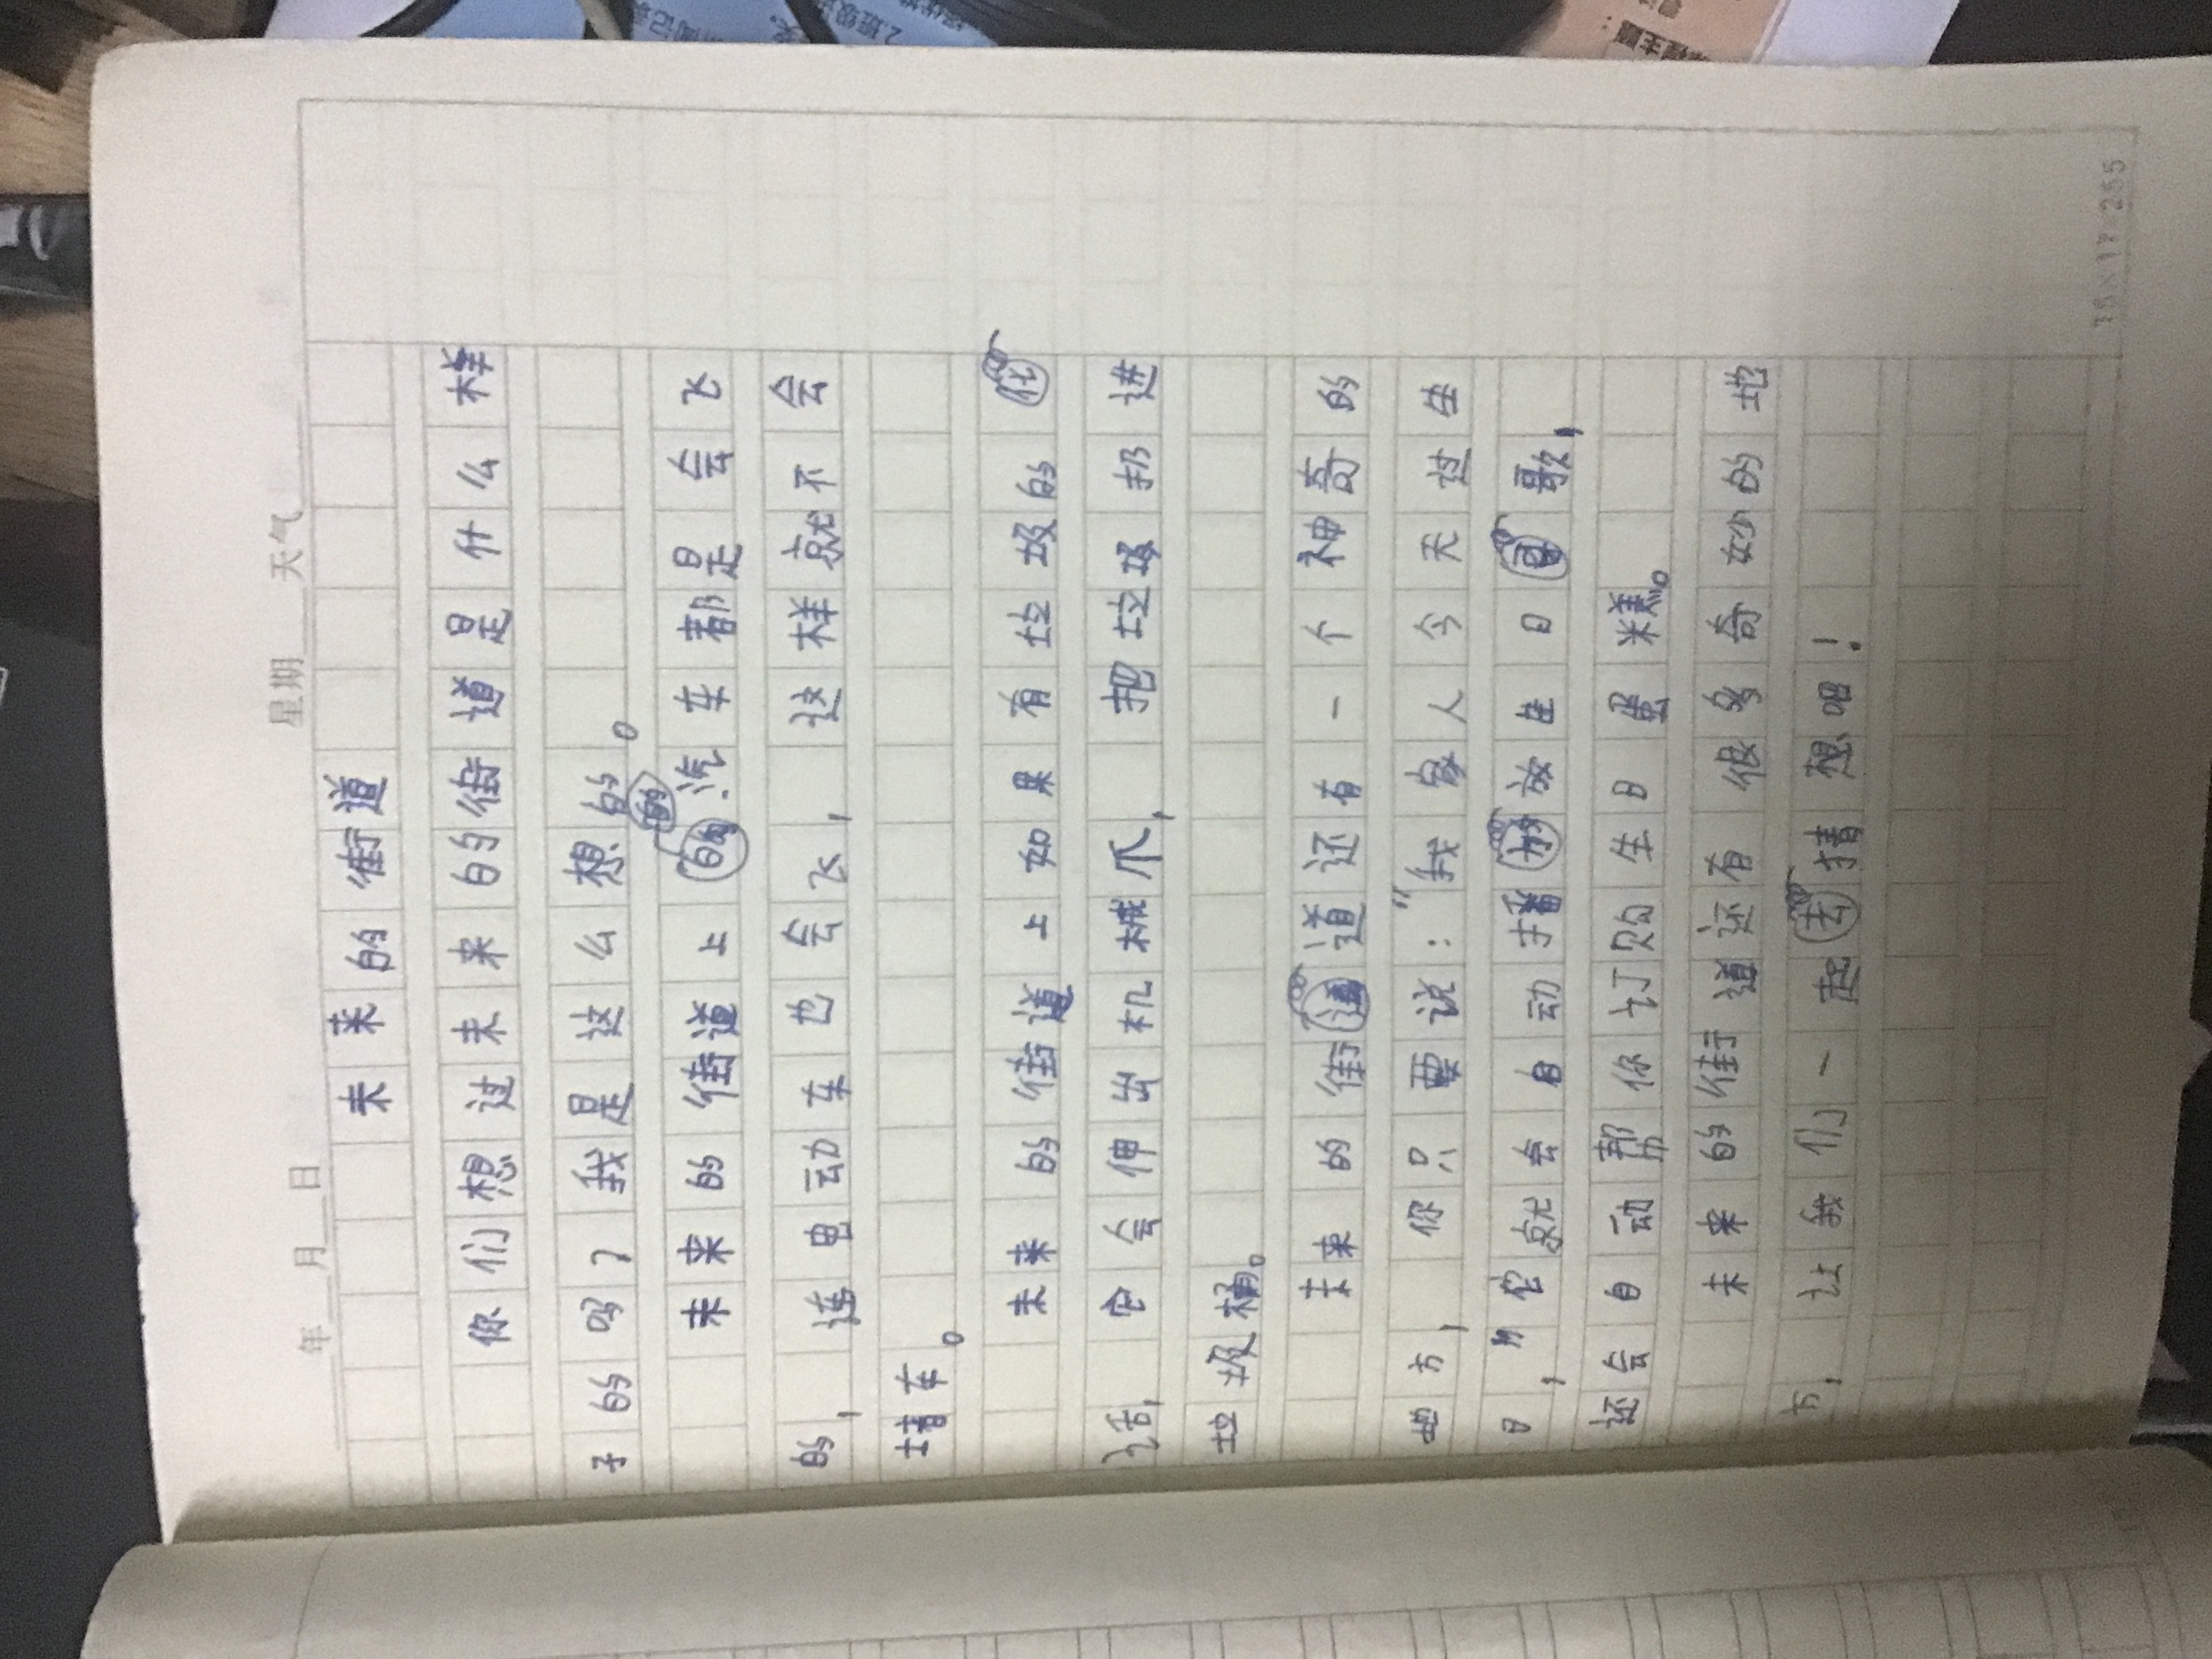 年 月 日 星期 天气
未来的街道
你们想过未来的街道是什么样
子的吗?我是这么想的。
未来的街道上的汽车都是会飞
的,连电动车也会飞,这样就不会
堵车。
未来的街道上如果有垃圾的
话,它会伸出机械爪,把垃圾扔进
垃圾桶。
未来的街道还有一个神奇的
地方,你只要说:“我家人今天过生
日,那它就会自动播放生日歌,
还会自动帮你订购生日蛋糕。
未来的街道还有很多奇妙的地
方,让我们一起猜想吧!
15×17=255